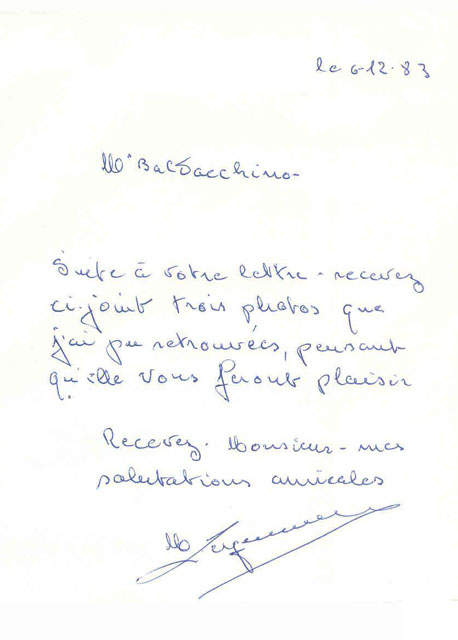 le 6-12-83
Mr Baldacchino-
Suite à votre lettre - recevez
ci-joint trois photos que
j'ai pu retrouvées, pensant
qu'elle vous feront plaisir
Recevez. Monsieur - mes
salutations amicales